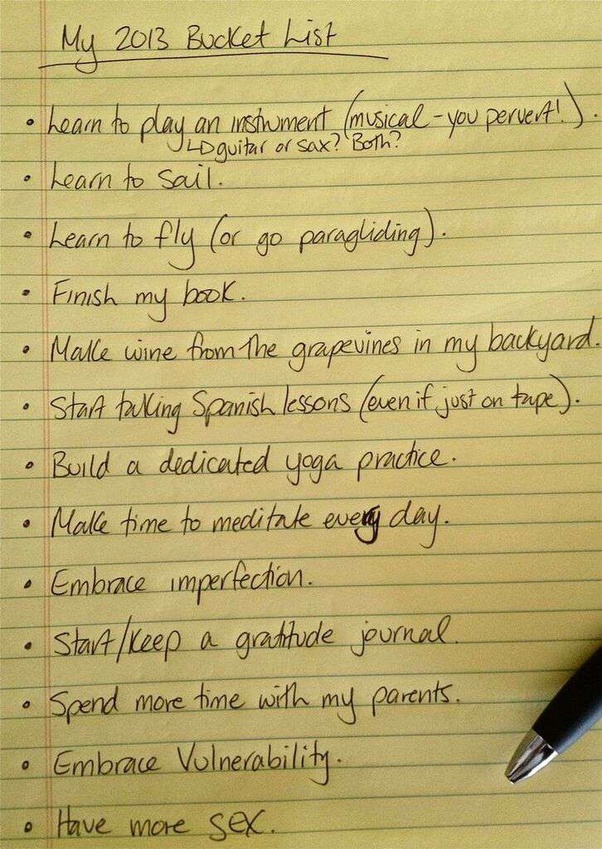 My 2013 Bucket List
• Learn to play an instrument (musical - you pervert!).
↳ guitar or sax? Both?
• Learn to sail.
• Learn to fly (or go paragliding).
• Finish my book.
• Make wine from the grapevines in my backyard.
• Start taking Spanish lessons (even if just on tape).
• Build a dedicated yoga practice.
• Make time to meditate every day.
• Embrace imperfection.
• Start/Keep a gratitude journal.
• Spend more time with my parents.
• Embrace Vulnerability.
• Have more sex.